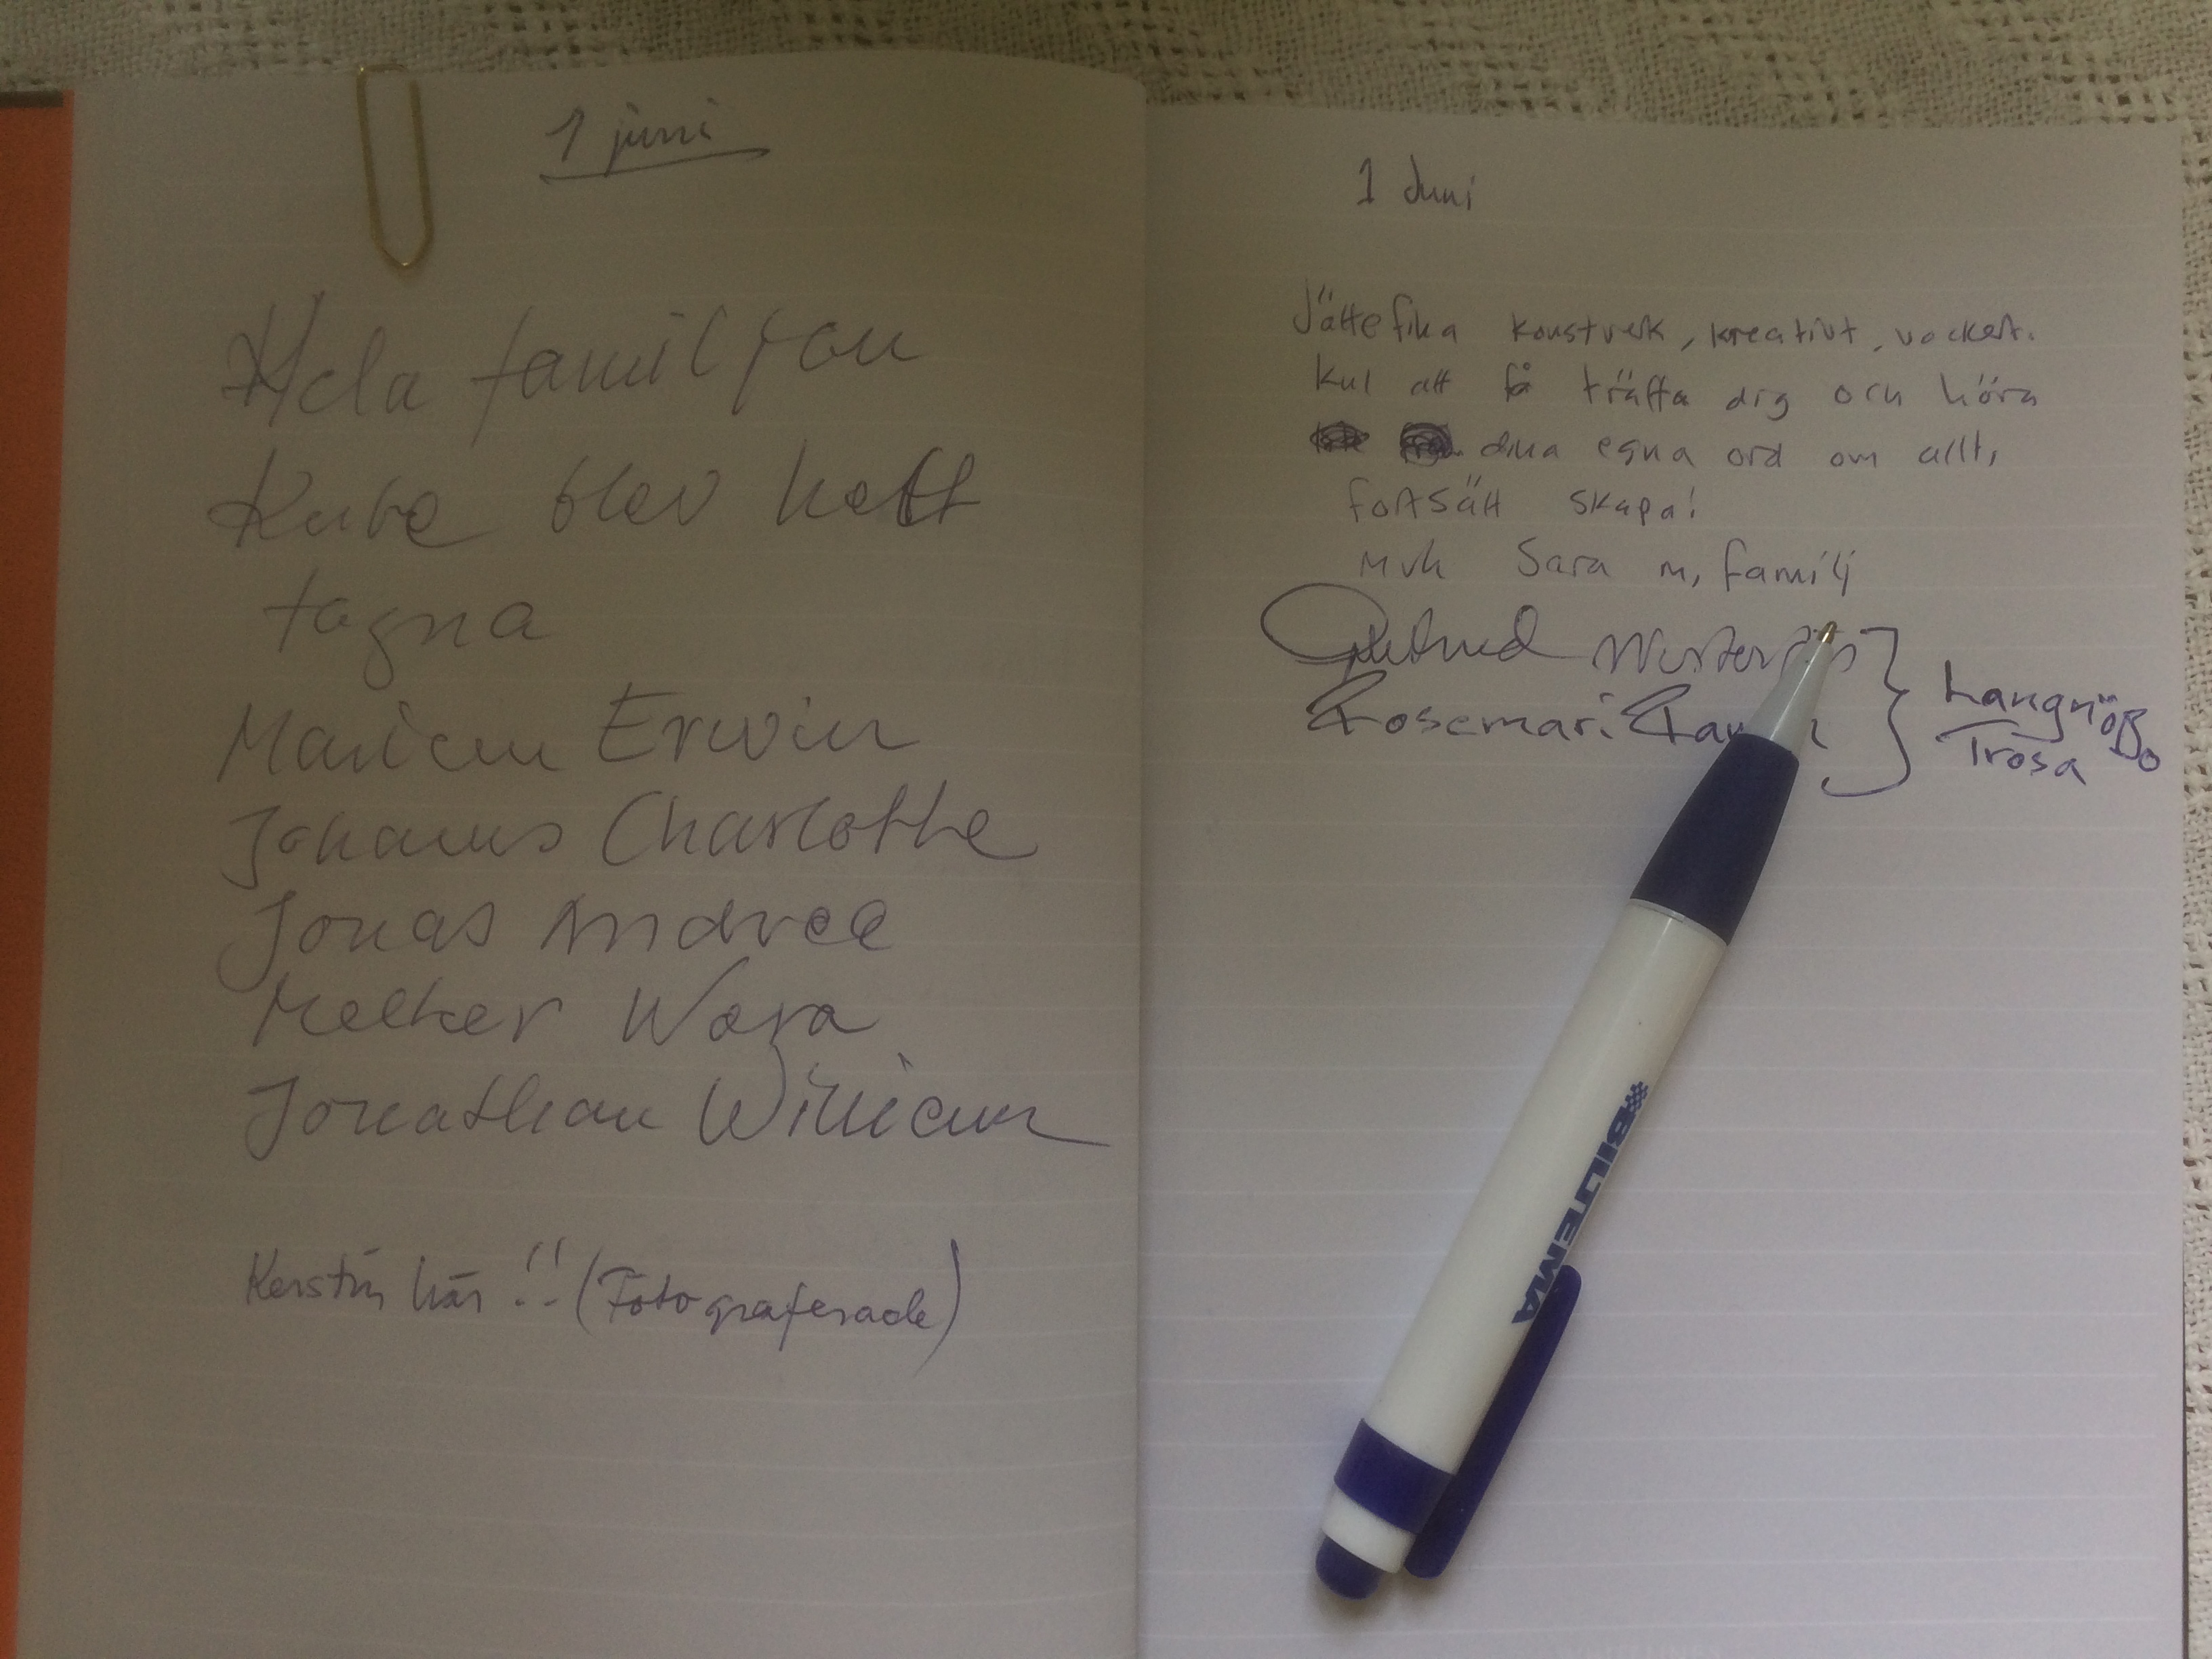 1 juni
Hela familjen
Kube blev helt
tagna
Mariam Erwin
Johannes Charlotte
Jonas Andrea
Melker Wara
Jonathan William
Kerstin här!! (Fotograferade)
1 Juni
Jättefina konstverk, kreativt, vackert.
Kul att få träffa dig och höra
dina egna ord om allt,
fortsätt skapa!
Mvh Sara m, familj
Rosemari
Trosa
BILTEMA